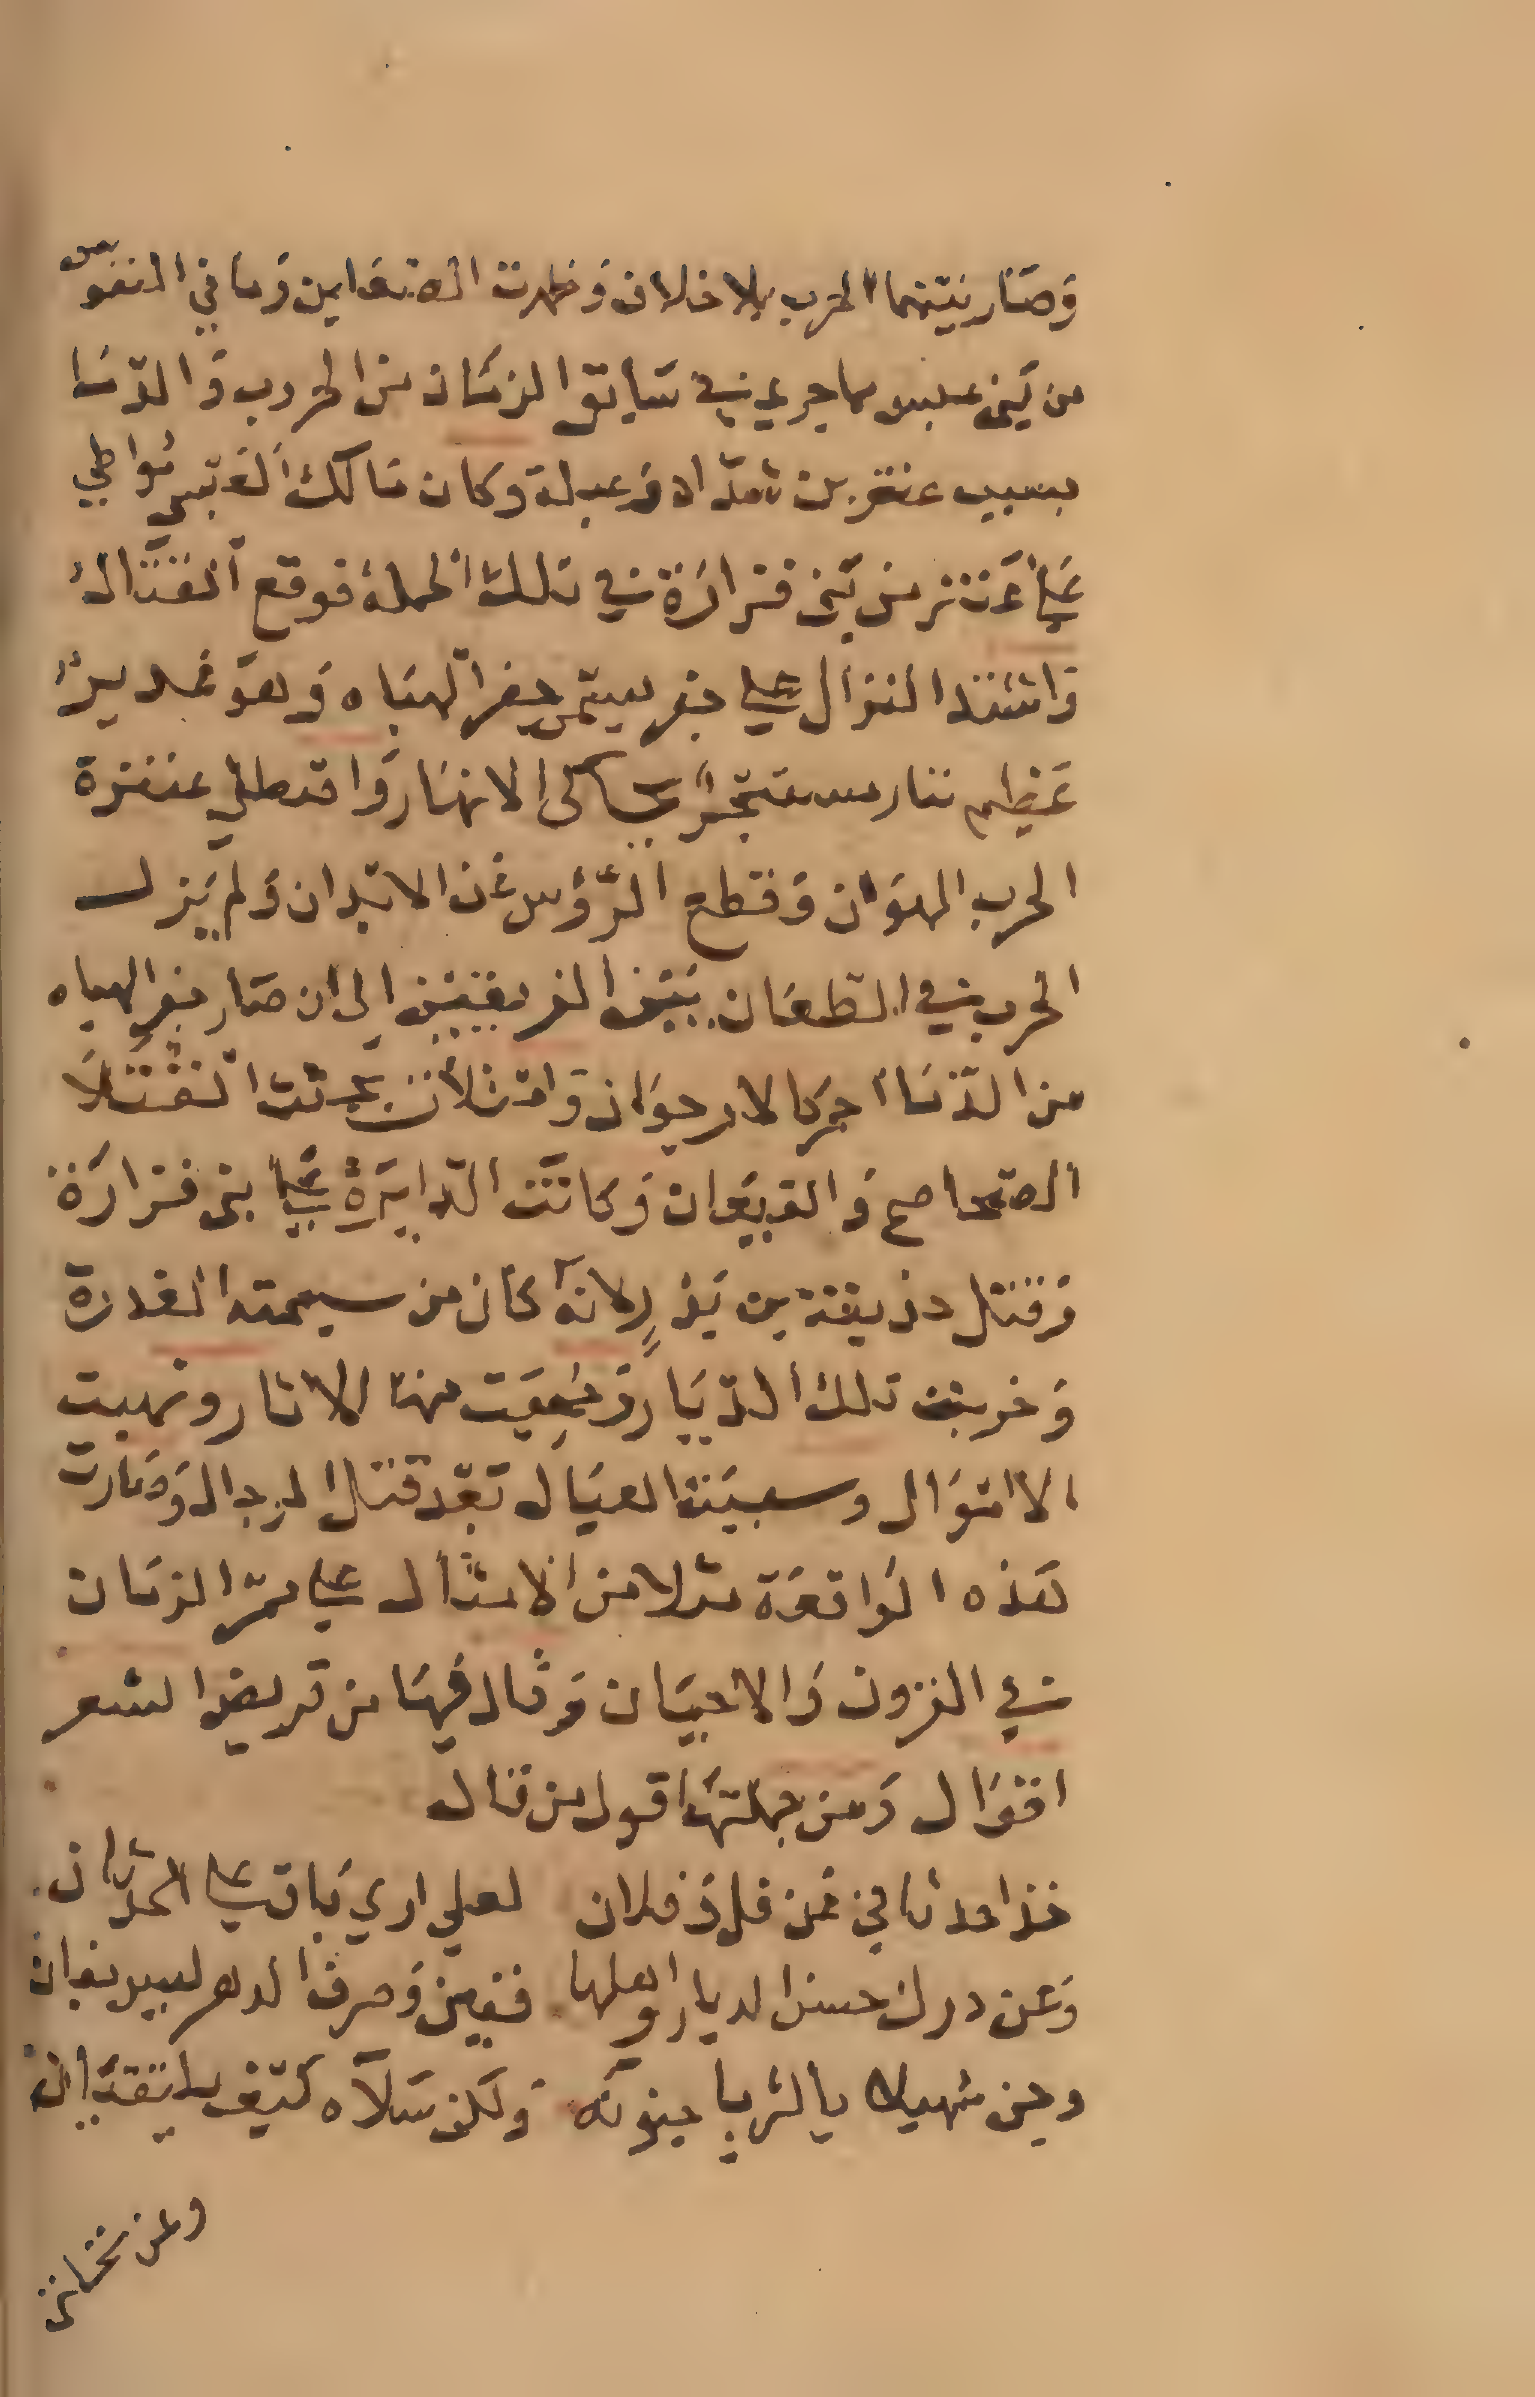 وَصَار بَيْنهما الحرب بلا خلاف وَظهرت الضغاين وَما في النفوس
من بَني عبس مما جري في سَابق الزمَان من الحروب وَالدّمَا
بسبب عنتر بن شدّاد وَعبلة وكان مَالك العَبسي مُواطي
عَلي عَنتر من بَني فزارَة في تلك الحملة فوقع القتالُ
وَاشتد النزال علي جفر يسمّى جفر الهبَاه وَهوَ غدير
عَظيم بنار مستبحرٌ يحاكى الانهَار وَاقتطلي عنترة
الحرب الهوَان وَقطع الرّؤس عَن الابدان وَلم يَزل
الحرب في الطعَان بَين الفريقين الى ان صَار جفر الهباه
من الدّمَا احمر كالارجوَان وَامتلأت بجثث القتلَا
الصحاصح وَالقيعَان وَكانَت الدّايرَة عَلي بني فزارَة
وَقتل حذيفة بن بَدرٍ لانهُ كان من سيمته الغدرة
وَخربت تلك الديَار وَمُحِيَت منهَا الاثار ونهبت
الاموَال وسبيَت العيَال بَعْد قتل الرجال وَصَارت
هَذه الوَاقعَة مثلا من الامثال علي ممرّ الزمَان
في القرون وَالاحيَان وَقال فيهَا من قريض الشعر
اقوَال وَمن جملتهَا قول من قال
خذا حدثاني عَن فل وَفلان لعلي اري بَاق علي الحدثان
وَعن دول حسن الديار واهلها ففين وَصرف الدهر ليس بفان
وعن سهيلا بالثريا جنونه وَلكن سَلاه كيف يلتقيَان